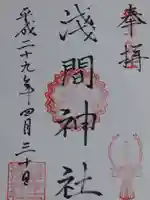 奉拝
淺間神社
平成二十九年四月三十日